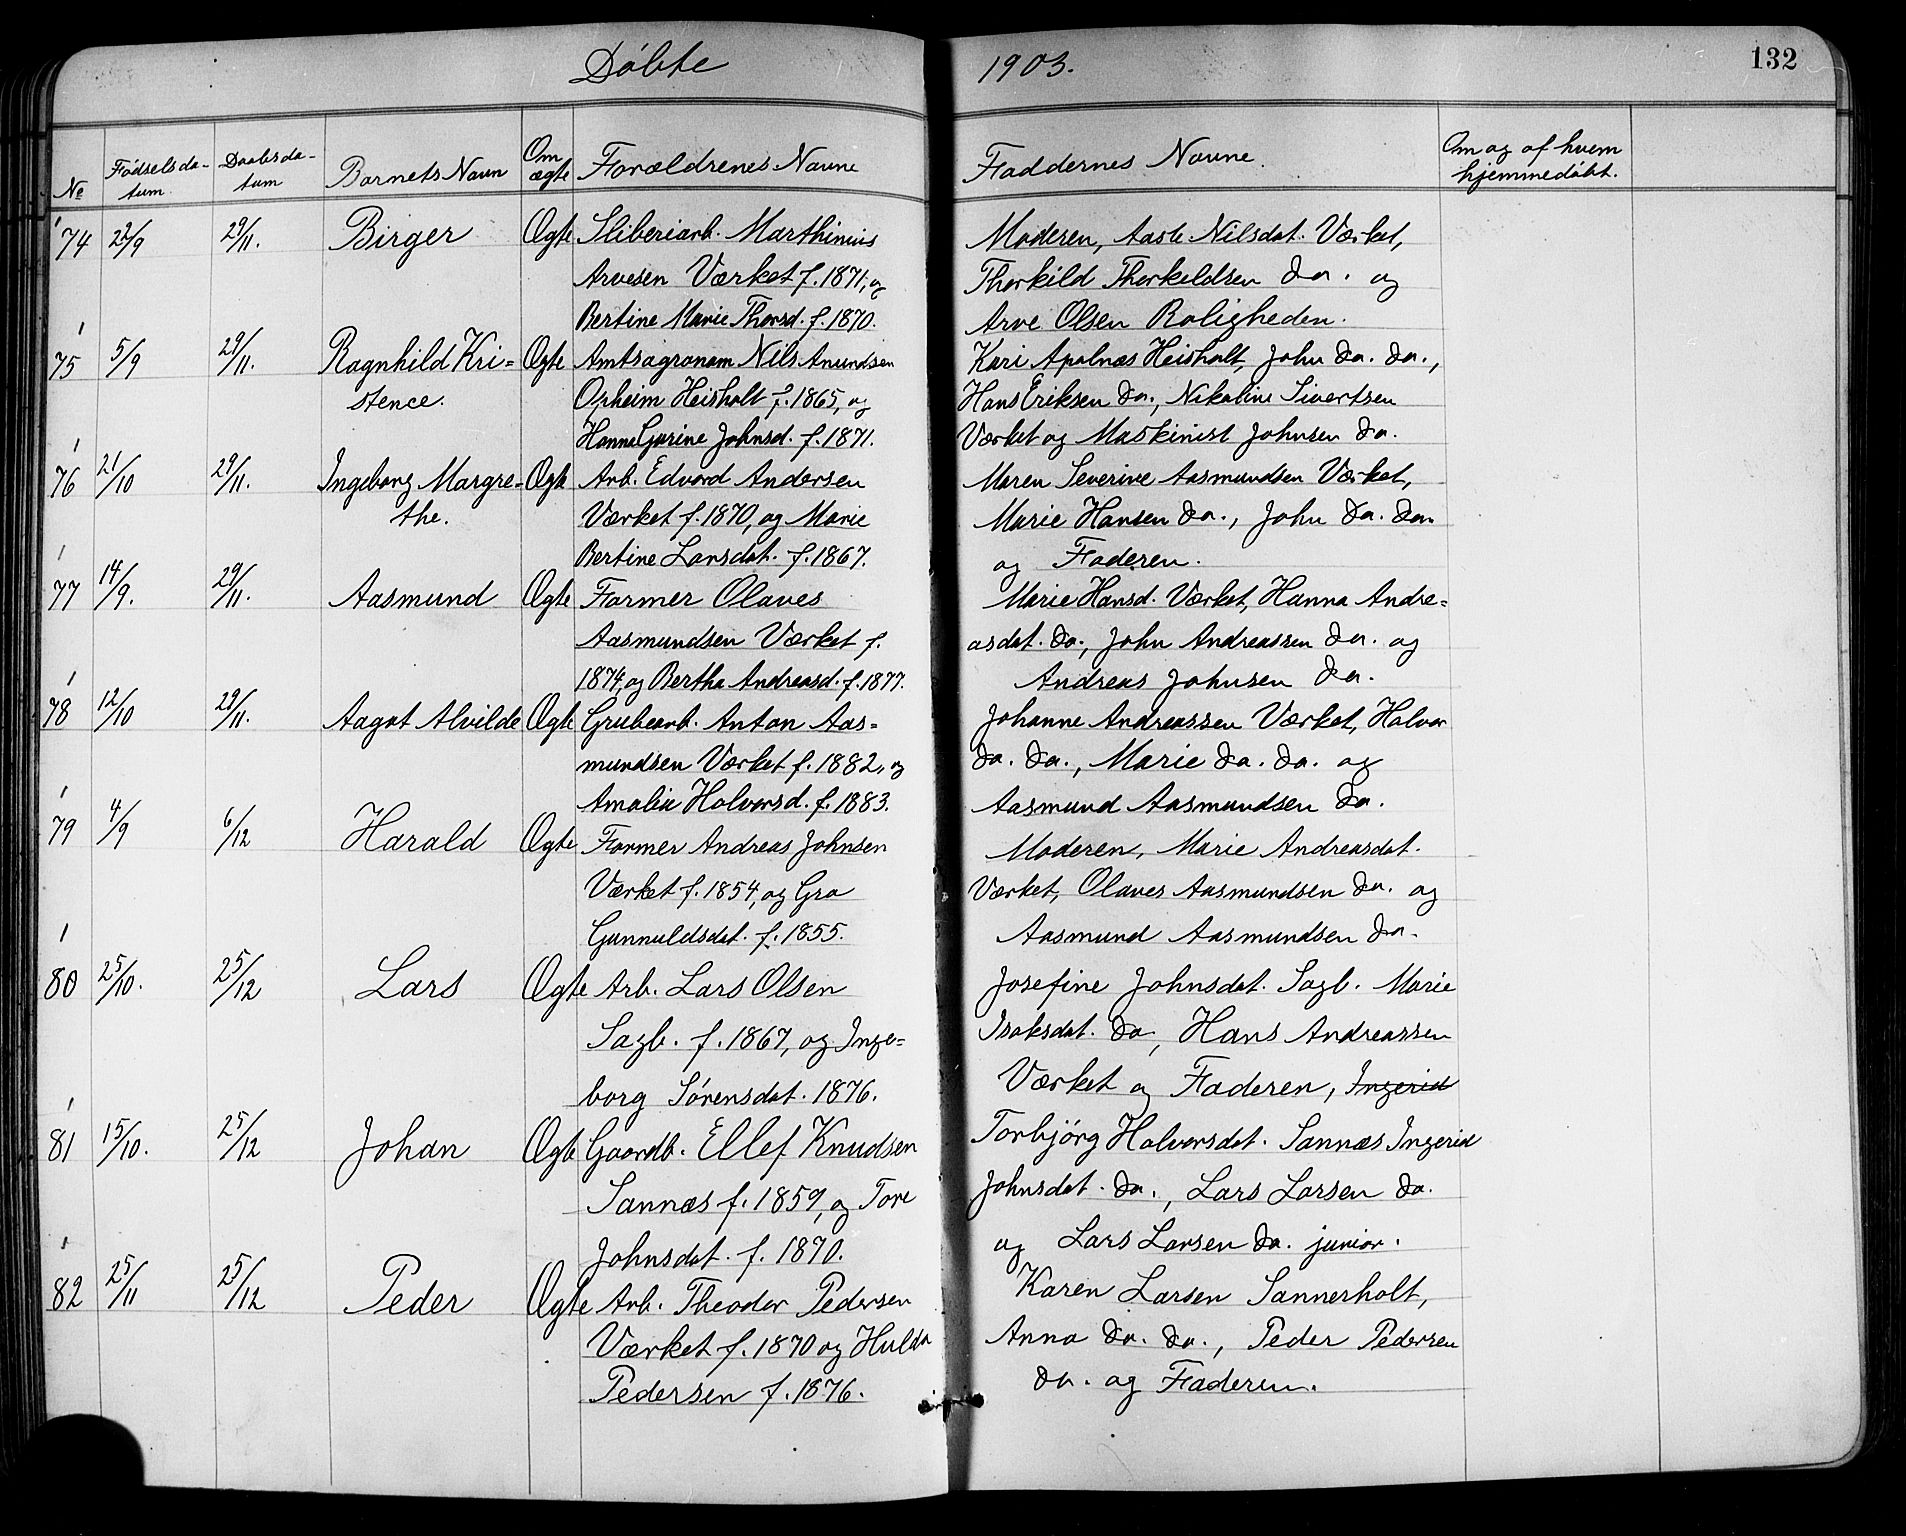 Döbte 1903. 132
No Födselsdatum. Daabsdatum Barnets Navn Om ægte Forældrenes Navne Faddernes Navne. Om og af hvem hjemmedöbt.
74 22/9 29/11. Birger Ægte Sliberiarb. Marthinius Moderen, Aaste Nilsdat. Værket,
Arvesen Værket f. 1871, og Thorkild Thorkeldsen do. og
Bertine Marie Thorsd. f. 1870. Arve Olsen Roligheden.
75 5/9 29/11. Ragnhild Kri= Ægte Amtsagronom Nils Anundsen Kari Apalnæs Heisholt, John do. do.,
stence. Opheim Heisholt f. 1865, og Hans Eriksen do., Nikoline Sivertsen
Hanna Gurine Johnsd. f. 1871. Værket og Maskinist Johnsen do.
76 21/10 29/11. Ingeborg Margre= Ægte Arb. Edvard Andersen Maren Severine Aasmundsen Værket,
the. Værket f. 1870, og Marie Marie Hansen do., John do. do.
Bertine Larsdat. f. 1867. og Faderen.
77 14/9. 29/11. Aasmund Ægte Former Olaves Marie Hansd. Værket, Hanna Andre=
Aasmundsen Værket f. asdat. do., John Andreassen do. og
1874, og Bertha Andreasd. f. 1877. Andreas Johnsen do.
78 12/10 29/11. Aagot Alvilde Ægte Grubearb. Anton Aas= Johanne Andreassen Værket, Halvor
mundsen Værket f. 1882, og do. do., Marie do. do. og
Amalie Halvorsd. f. 1883. Aasmund Aasmundsen do.
79 4/9 6/12 Harald Ægte Former Andreas Johnsen Moderen, Marie Andreasdat.
Værket f. 1854, og Gro Værket, Olaves Aasmundsen do. og
Gunnuldsdat. f. 1855. Aasmund Aasmundsen do.
80 25/10. 25/12 Lars Ægte Arb. Lars Olsen Josefine Johnsdat. Sagb. Marie
Sagb. f. 1867, og Inge= Isaksdat. do, Hans Andreassen
borg Sörensdat. 1876. Værket og Faderen, Ingerid
81 15/10. 25/12 Johan Ægte Gaardb. Ellef Knudsen Torbjörg Halvorsdat. Sannæs Ingerid
Sannæs f. 1859, og Tore Johnsdat. do., Lars Larsen do.
Johnsdat. f. 1870. og Lars Larsen do. junior.
82 25/11 25/12 Peder Ægte Arb. Theodor Pedersen Karen Larsen Sannesholt,
Værket f. 1870 og Hulda Anna do. do., Peder Pedersen
Pedersen f. 1876. do. og Faderen.